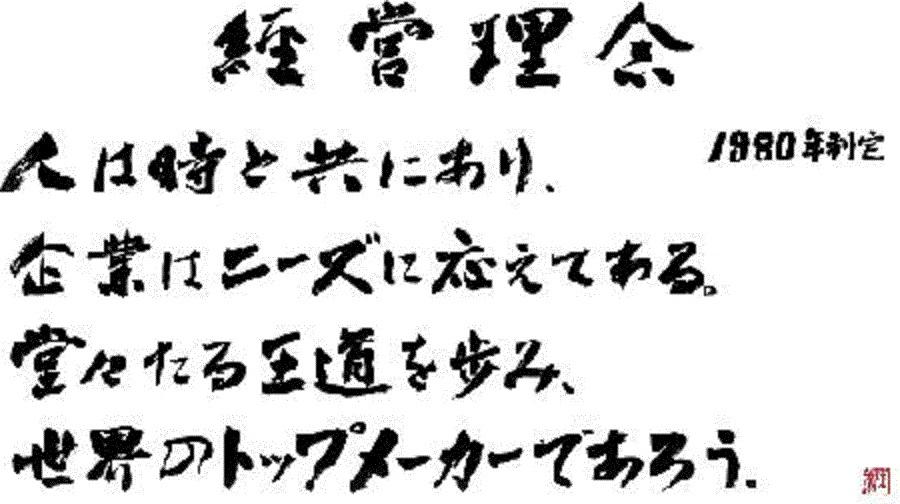 經営理念
1980年制定
人は時と共にあり、
企業はニーズに応えてある。
堂々たる王道を歩み、
世界のトップメーカーであろう。